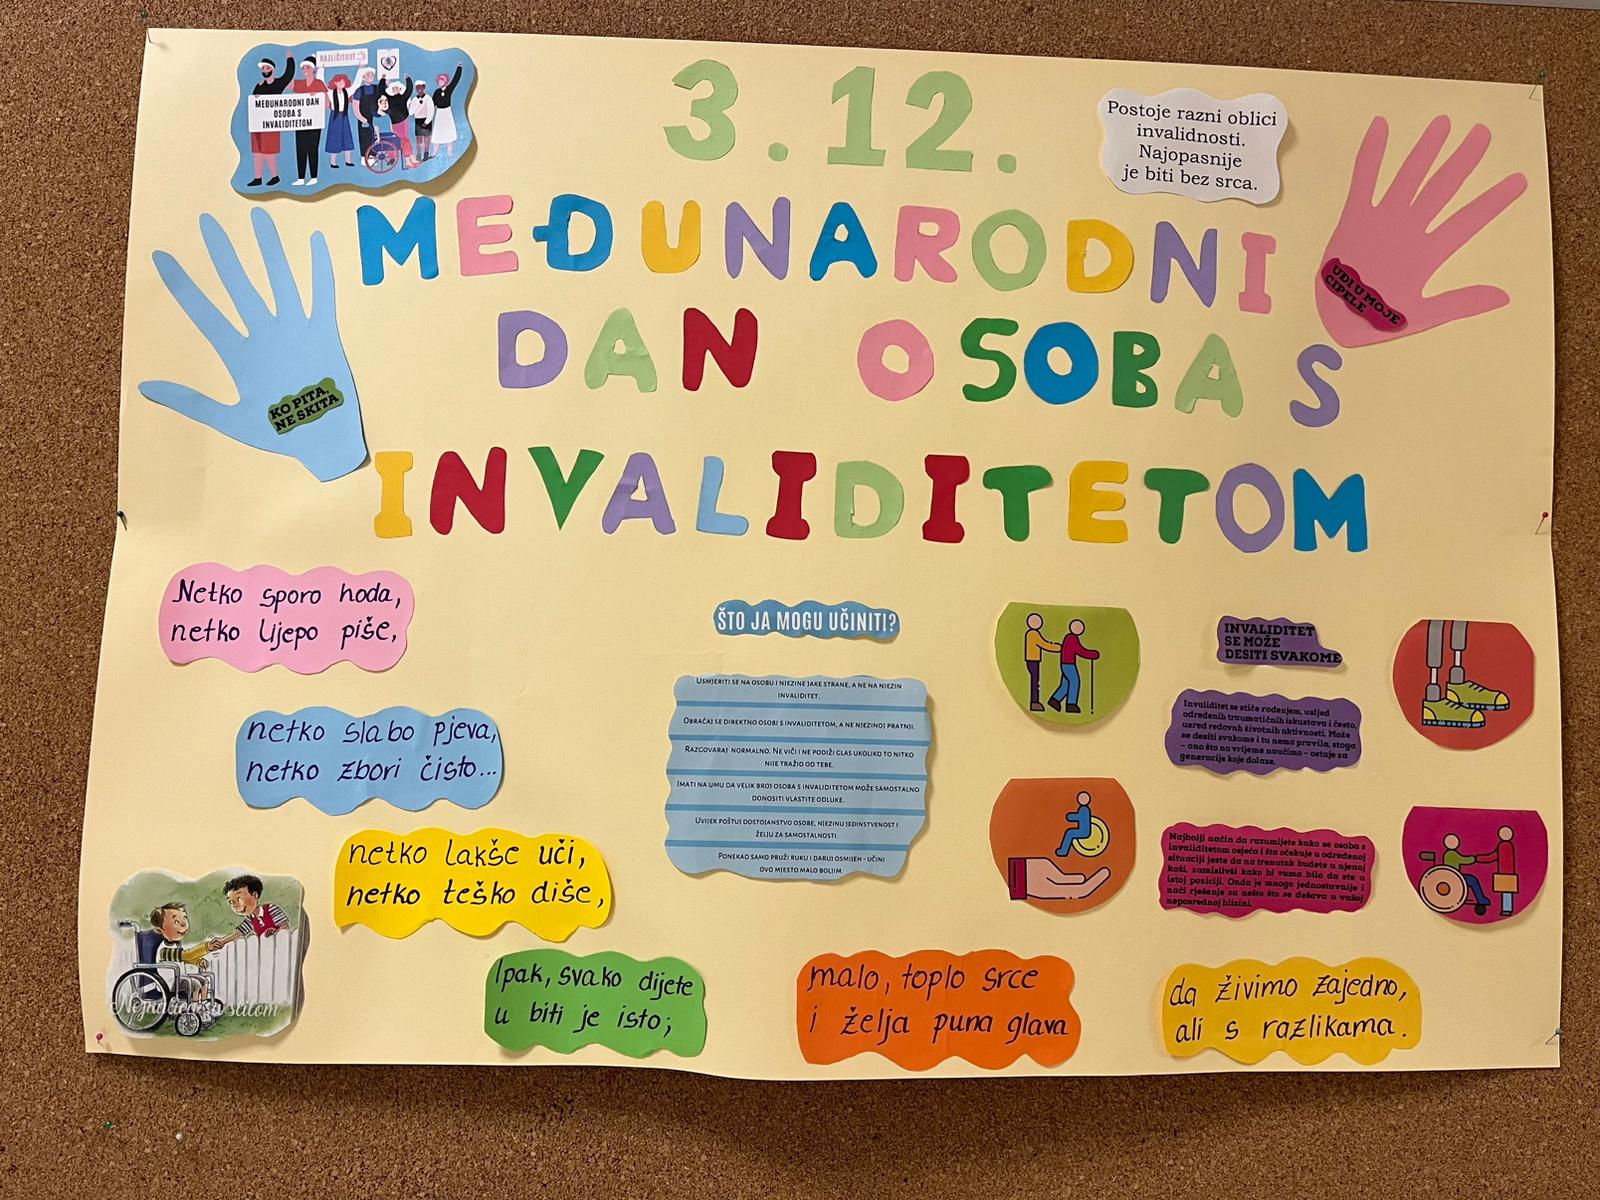 RAZLIČITOST
MEĐUNARODNI DAN
OSOBA S
INVALIDITETOM
3.12.
Postoje razni oblici
invalidnosti.
Najopasnije
je biti bez srca.
MEĐUNARODNI
DAN OSOBA S
INVALIDITETOM
KO PITA,
NE SKITA
UĐI U MOJE
CIPELE
Netko sporo hoda,
netko lijepo piše,
netko slabo pjeva,
netko zbori čisto...
netko lakše uči,
netko teško diše,
Ipak, svako dijete
u biti je isto;
malo, toplo srce
i želja puna glava
da živimo zajedno,
ali s razlikama.
ŠTO JA MOGU UČINITI?
USMJERITI SE NA OSOBU I NJEZINE JAKE STRANE, A NE NA NJEZIN
INVALIDITET.
OBRAĆAJ SE DIREKTNO OSOBI S INVALIDITETOM, A NE NJEZINOJ PRATNJI.
RAZGOVARAJ NORMALNO. NE VIČI I NE PODIŽI GLAS UKOLIKO TO NITKO
NIJE TRAŽIO OD TEBE.
IMATI NA UMU DA VELIK BROJ OSOBA S INVALIDITETOM MOŽE SAMOSTALNO
DONOSITI VLASTITE ODLUKE.
UVIJEK POŠTUJ DOSTOJANSTVO OSOBE, NJEZINU JEDINSTVENOST I
ŽELJU ZA SAMOSTALNOSTI.
PONEKAD SAMO PRUŽI RUKU I DARUJ OSMIJEH - UČINI
OVO MJESTO MALO BOLJIM.
INVALIDITET
SE MOŽE
DESITI SVAKOME
Invaliditet se stiče rođenjem, usljed
određenih traumatičnih iskustava i često,
usred redovnih životnih aktivnosti. Može
se desiti svakome i tu nema pravila, stoga
– ono što na vrijeme naučimo – ostaje za
generacije koje dolaze.
Najbolji način da razumijete kako se osoba s
invaliditetom osjeća i šta očekuje u određenoj
situaciji jeste da na trenutak budete u njenoj
koži, zamislivši kako bi vama bilo da ste u
istoj poziciji. Onda je mnogo jednostavnije i
naći rješenje za nešto što se dešava u vašoj
neposrednoj blizini.